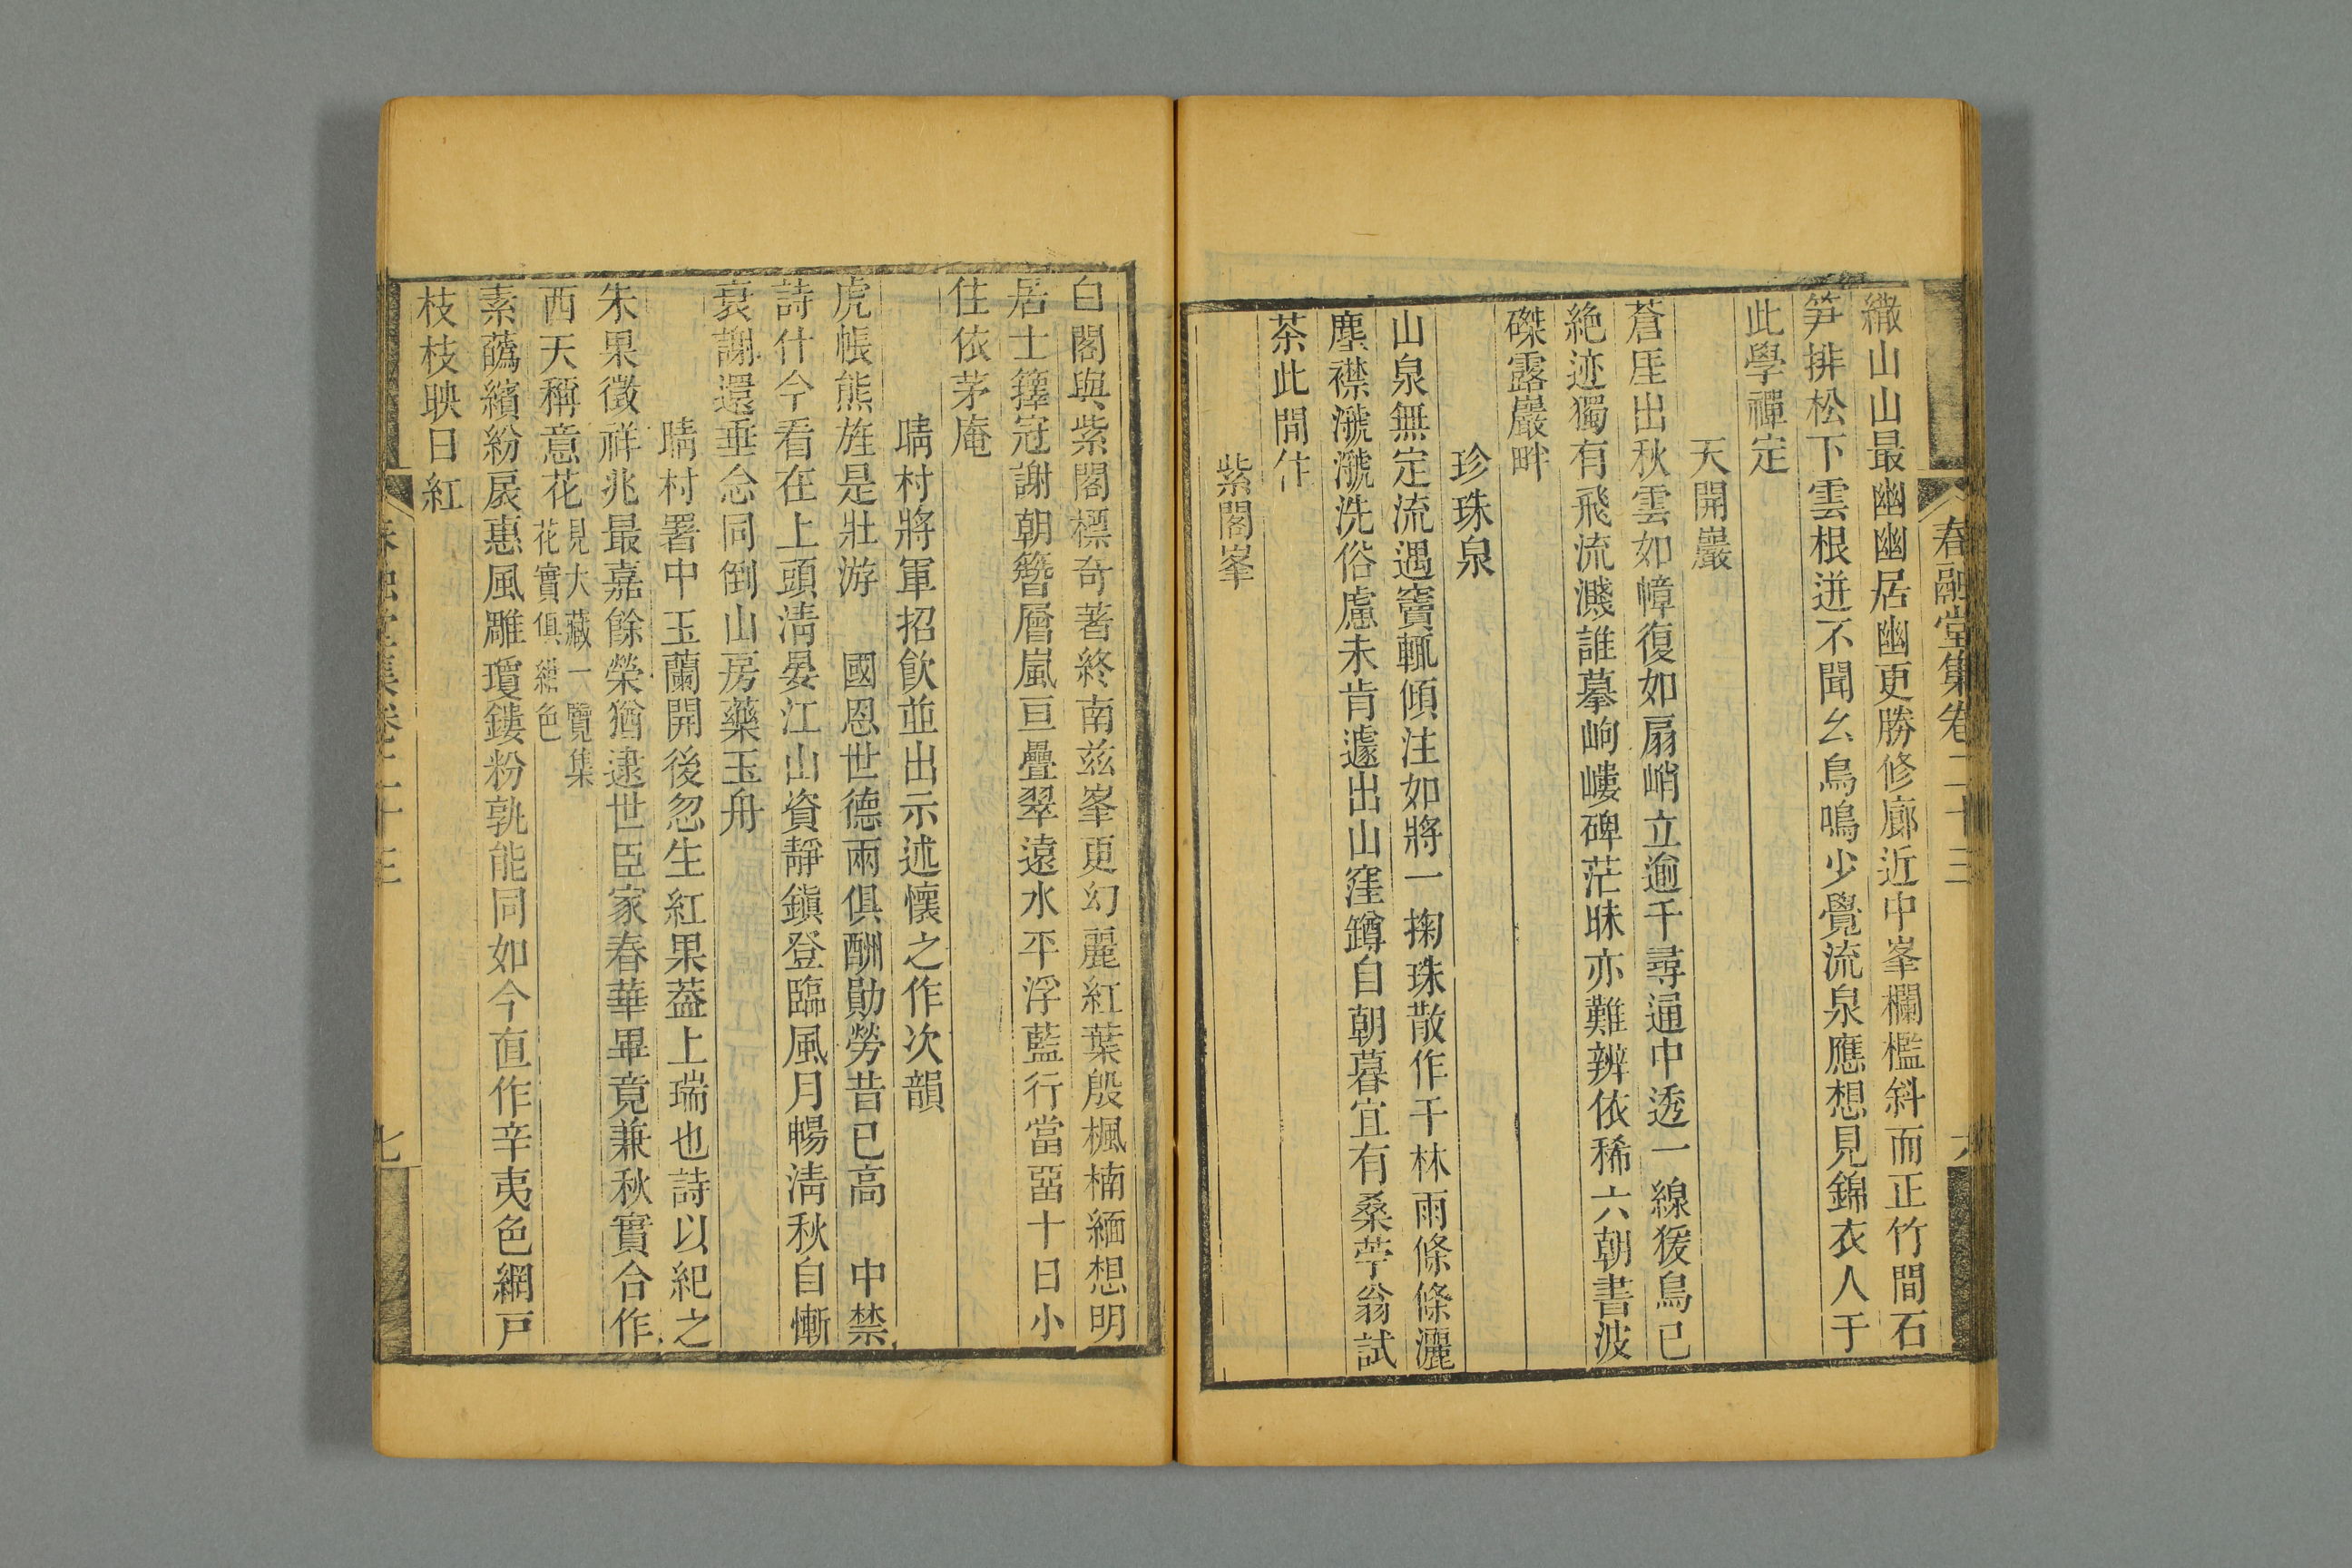 春融堂集卷二十三
六
緻山山最幽幽居幽更勝修廊近中峯欄檻斜而正竹間石
笋排松下雲根迸不聞幺鳥鳴少覺流泉應想見錦衣人于
此學禪定
天開巖
蒼厓出秋雲如幛復如扇峭立逾千尋通中透一線猨鳥已
絶迹獨有飛流濺誰摹岣嶁碑茫昧亦難辨依稀六朝書波
磔露巖畔
珍珠泉
山泉無定流遇竇輒傾注如將一掬珠散作千林雨條條灑
塵襟㶁㶁洗俗慮未肯遽出山窪罇自朝暮宜有桑苧翁試
茶此閒住
紫閣峯
白閣與紫閣標奇著終南兹峯更幻麗紅葉殷楓楠緬想明
居士籜冠謝朝簪層嵐亘疊翠遠水平浮藍行當㽞十日小
住依茅庵
晴村將軍招飲並出示述懷之作次韻
虎帳熊旌是壯游　國恩世德兩俱酬勛勞昔已高　中禁
詩什今看在上頭淸晏江山資靜鎭登臨風月暢淸秋自慚
衰謝還垂念同倒山房藥玉舟
晴村署中玉蘭開後忽生紅果葢上瑞也詩以紀之
朱果徵祥兆最嘉餘榮猶逮世臣家春華畢竟兼秋實合作
西天稱意花見大藏一覽集
花實俱維色
素蘤繽紛扆惠風雕瓊鏤粉孰能同如今直作辛夷色網戸
枝枝映日紅
春融堂集卷二十三
七